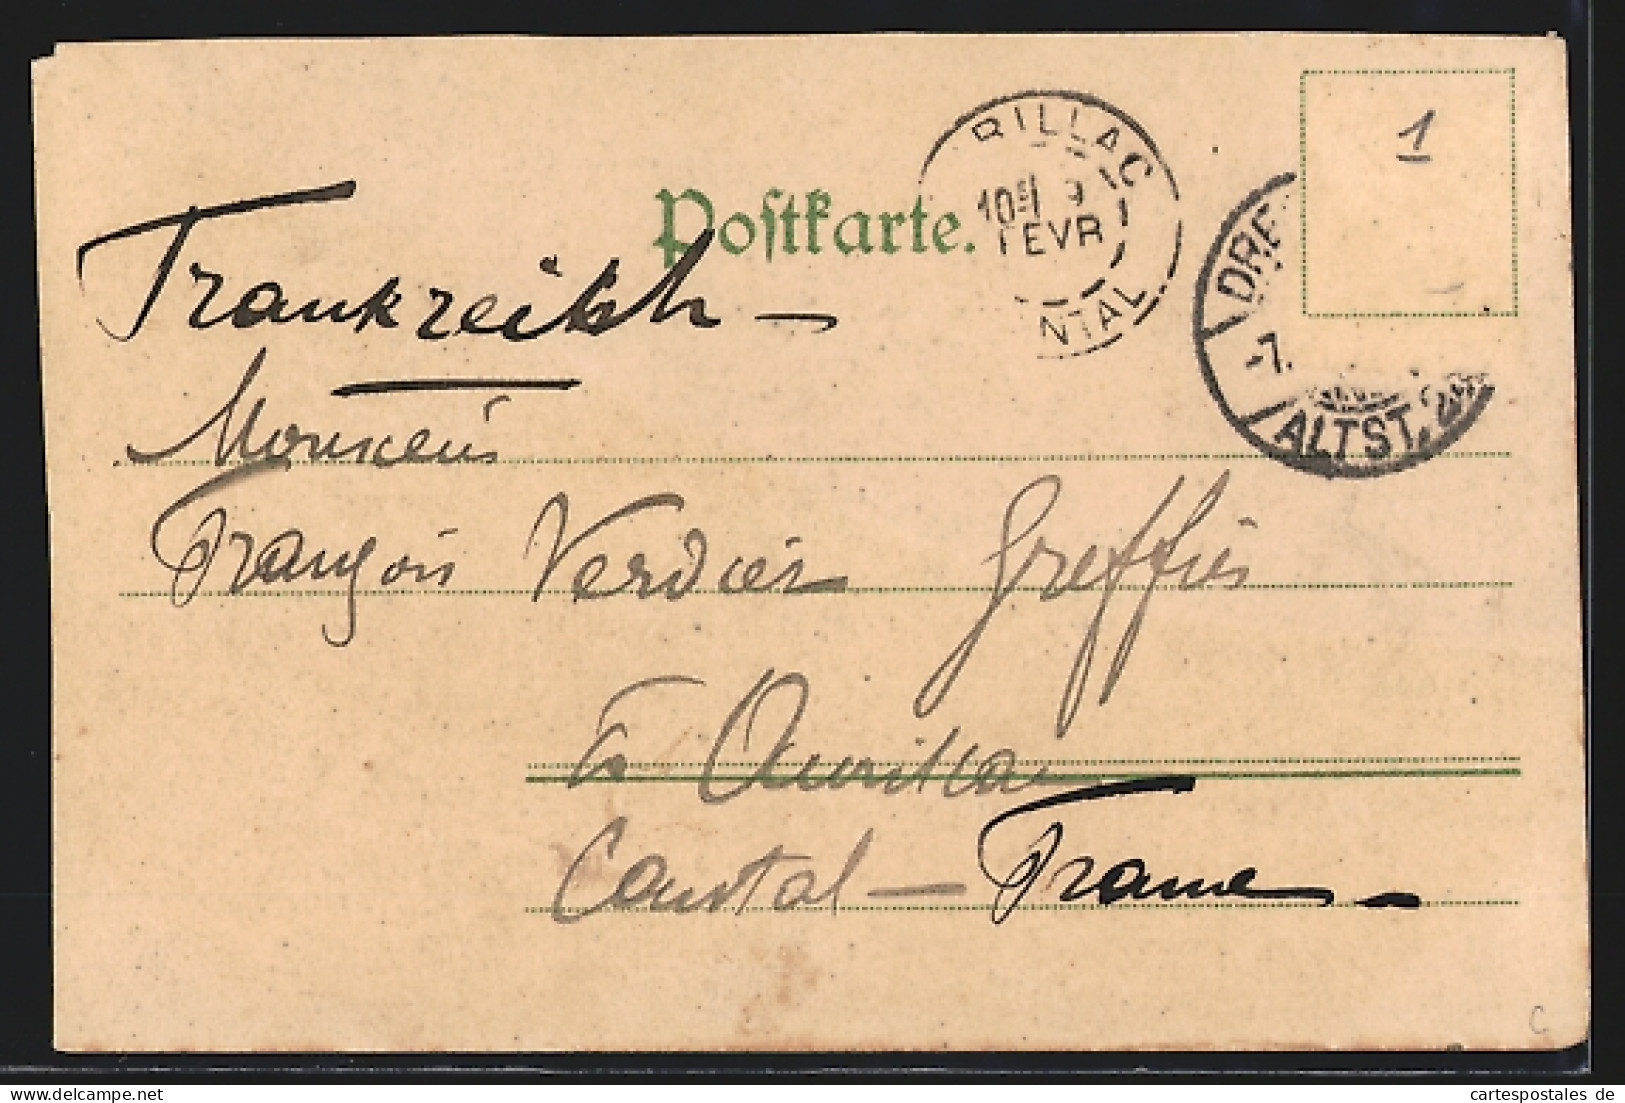 Postkarte.
RILLAC
10 9
FEVR
NTAL
DRE
-7.
ALTST.
1
Frankreich —
Monsieur
François Verdier Greffier
à Aurillac
Cantal — France —
C
cartespostales de